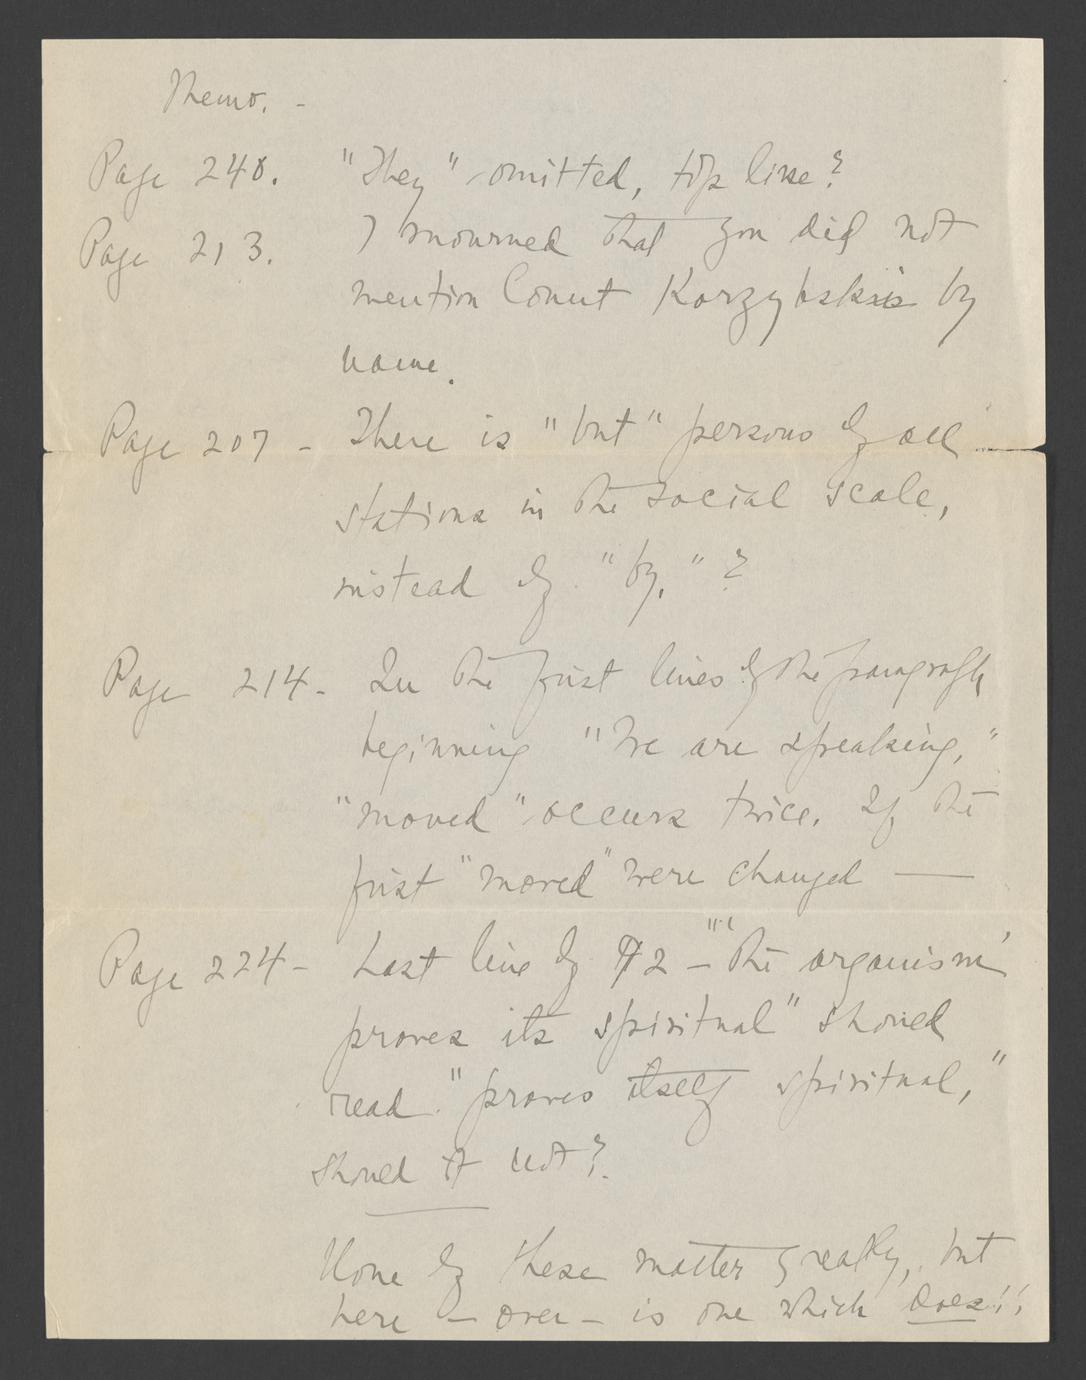 Memo. -
Page 248. "They" omitted, top line?
Page 213. I mourned that you did not
mention Count Korzybski by
name.
Page 207 - There is "but" persons of all
stations in the social scale,
instead of "by." ?
Page 214 - In the first lines of the paragraph
beginning "We are speaking,"
"moved" occurs twice. If the
first "moved" were changed —
Page 224 - Last line of ¶2 - "'the organism'
proves its spiritual" should
read "proves itself spiritual,"
should it not?
None of these matter greatly, but
here - over - is one which does!!